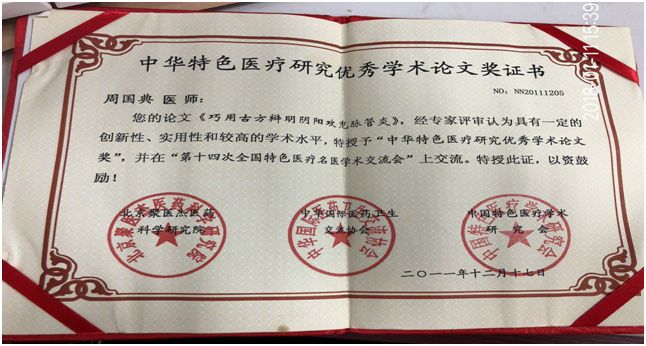 中华特色医疗研究优秀学术论文奖证书
NO：NN20111205
周国典 医 师：
您的论文《巧用古方辩明阴阳攻克脉管炎》，经专家评审认为具有一定的
创新性、实用性和较高的学术水平，特授予“中华特色医疗研究优秀学术论文
奖”，并在“第十四次全国特色医疗名医学术交流会”上交流。特授此证，以资鼓
励！
北京聚医杰医药
科学研究院
中华国际医药卫生
交流协会
中国特色医疗学术
研 究 会
北京聚医杰医药科学研究院
中华国际医药卫生交流协会
中国特色医疗学术研究会
二〇一一年十二月十七日
15:39